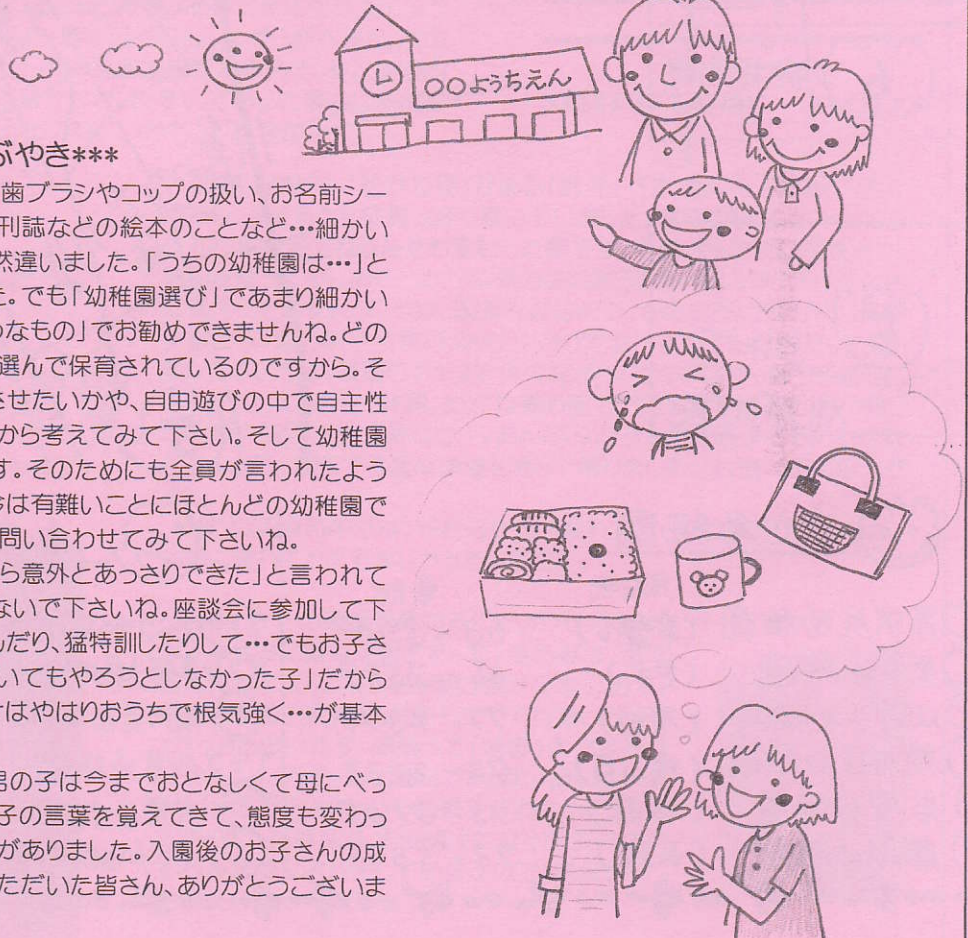 〇〇ようちえん
ぶやき***
歯ブラシやコップの扱い、お名前シー
刊誌などの絵本のことなど…細かい
然違いました。「うちの幼稚園は…」と
た。でも「幼稚園選び」であまり細かい
つなもの」でお勧めできませんね。どの
選んで保育されているのですから。そ
させたいかや、自由遊びの中で自主性
から考えてみて下さい。そして幼稚園
す。そのためにも全員が言われたよう
今は有難いことにほとんどの幼稚園で
問い合わせてみて下さいね。
ら意外とあっさりできた」と言われて
ないで下さいね。座談会に参加して下
んだり、猛特訓したりして…でもお子さ
いてもやろうとしなかった子」だから
けはやはりおうちで根気強く…が基本
男の子は今までおとなしくて母にべっ
子の言葉を覚えてきて、態度も変わっ
がありました。入園後のお子さんの成
ただいた皆さん、ありがとうございま